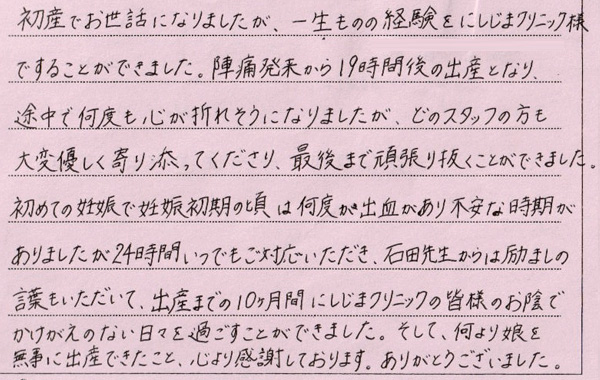 初産でお世話になりましたが、一生ものの経験をにしじまクリニック様
ですることができました。陣痛発来から19時間後の出産となり、
途中で何度も心が折れそうになりましたが、どのスタッフの方も
大変優しく寄り添ってくださり、最後まで頑張り抜くことができました。
初めての妊娠で妊娠初期の頃は何度か出血があり不安な時期が
ありましたが24時間いつでもご対応いただき、石田先生からは励ましの
言葉もいただいて、出産までの10ヶ月間にしじまクリニックの皆様のお陰で
かけがえのない日々を過ごすことができました。そして、何より娘を
無事に出産できたこと、心より感謝しております。ありがとうございました。